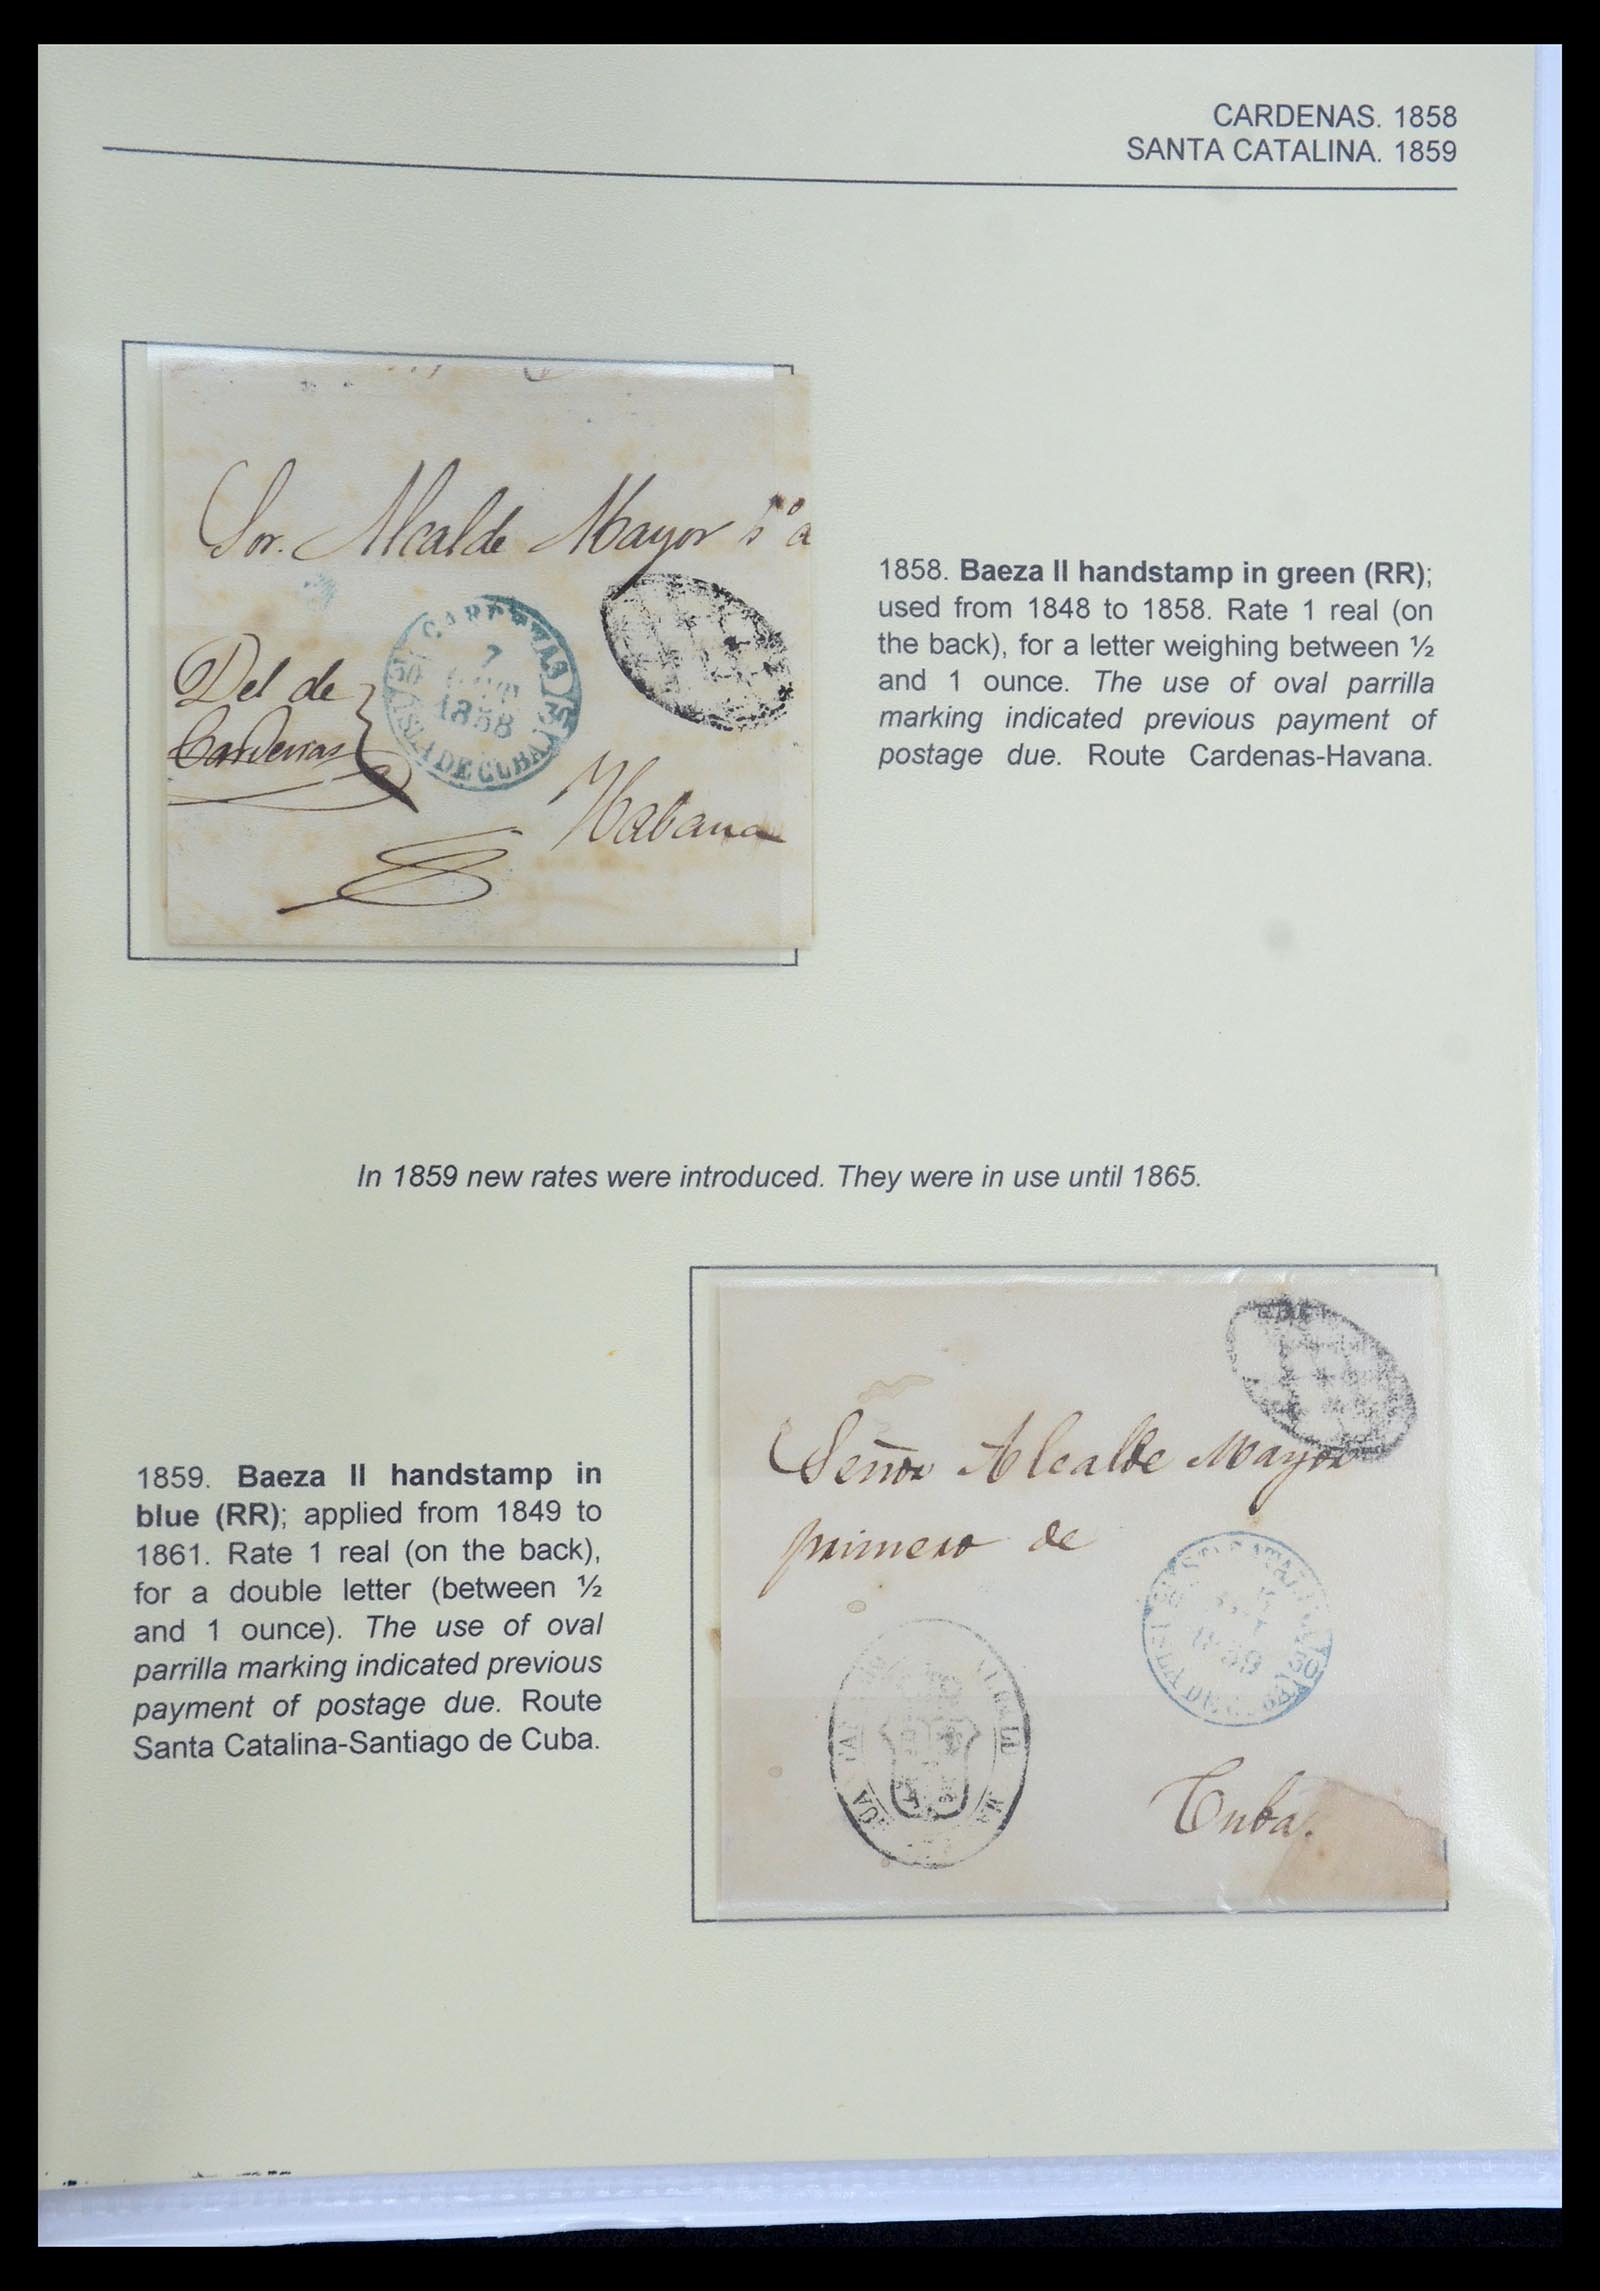 CARDENAS. 1858
SANTA CATALINA. 1859
Sor. Alcalde Mayor
Del de
Cardenas
7
1858
30
ISLA DE CUBA
Habana
1858. Baeza II handstamp in green (RR);
used from 1848 to 1858. Rate 1 real (on
the back), for a letter weighing between ½
and 1 ounce. The use of oval parrilla
marking indicated previous payment of
postage due. Route Cardenas-Havana.
In 1859 new rates were introduced. They were in use until 1865.
1859. Baeza II handstamp in
blue (RR); applied from 1849 to
1861. Rate 1 real (on the back),
for a double letter (between ½
and 1 ounce). The use of oval
parrilla marking indicated previous
payment of postage due. Route
Santa Catalina-Santiago de Cuba.
Señor Alcalde Mayor
primero de
1859
30
Cuba.